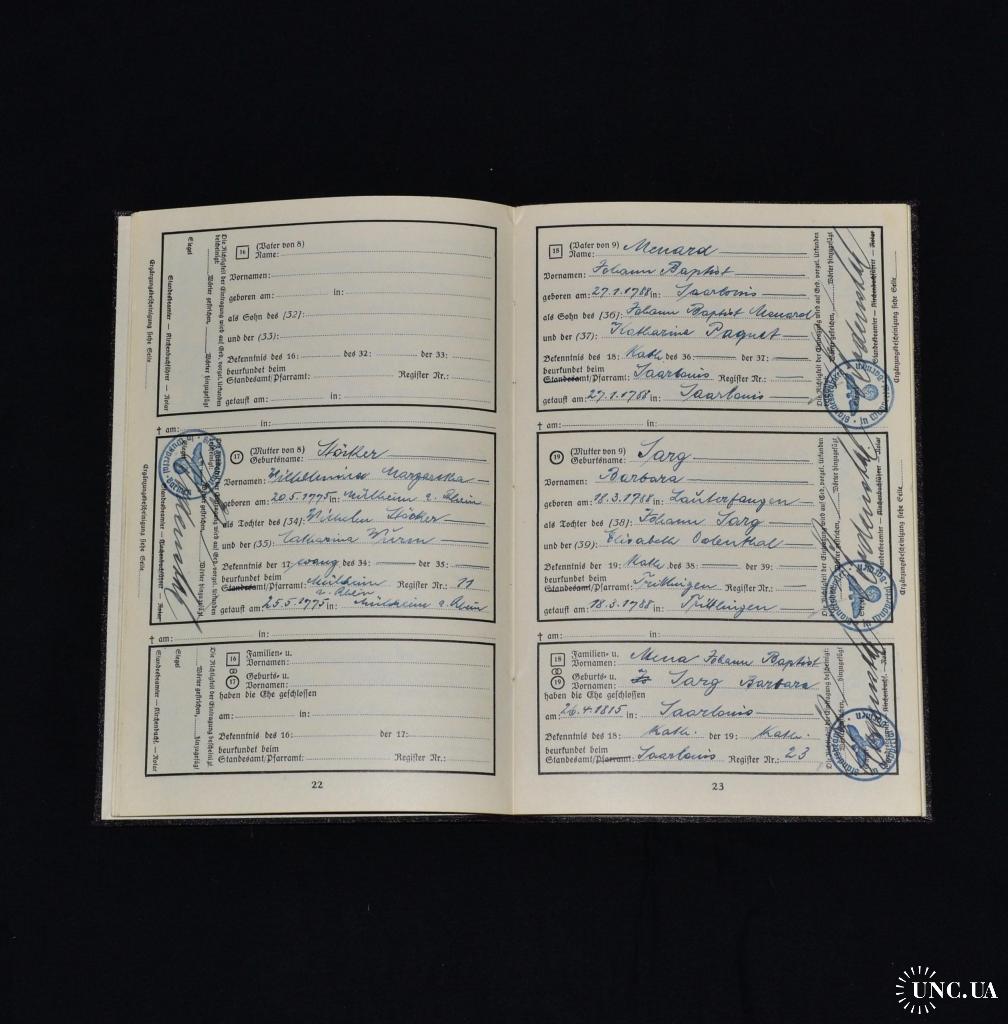 16 (Vater von 8)
Name:
Vornamen:
geboren am: in:
als Sohn des [32]:
und der (33):
Bekenntnis des 16: des 32: der 33:
beurkundet beim
Standesamt/Pfarramt: Register Nr.:
getauft am: in:
† am: in:
17 (Mutter von 8)
Geburtsname: Stöcker
Vornamen: Wilhelmina Margaretha
geboren am: 20.5.1775 in: Mülheim a. Rhein
als Tochter des [34]: Wilhelm Stöcker
und der (35): Catharina Wurm
Bekenntnis der 17: evang des 34: der 35:
beurkundet beim
Standesamt/Pfarramt: Mülheim a. Rhein Register Nr.: 11
getauft am: 25.5.1775 in: Mülheim a. Rhein
† am: in:
16 Familien- u.
Vornamen:
17 Geburts- u.
Vornamen:
haben die Ehe geschlossen
am: in:
Bekenntnis des 16: der 17:
beurkundet beim
Standesamt/Pfarramt: Register Nr.:
22
Die Richtigkeit der Eintragung wird auf Grd. vorgel. Urkunden
bescheinigt. Wörter gestrichen, Wörter hinzugefügt
Siegel
Standesbeamter — Kirchenbuchführer — Notar
Ergänzungsbescheinigung siehe Seite
18 (Vater von 9)
Name: Menard
Vornamen: Johann Baptist
geboren am: 27.1.1788 in: Saarlouis
als Sohn des [36]: Johann Baptist Menard
und der (37): Katharina Paquet
Bekenntnis des 18: Kath. des 36: der 37:
beurkundet beim
Standesamt/Pfarramt: Saarlouis Register Nr.:
getauft am: 27.1.1788 in: Saarlouis
† am: in:
19 (Mutter von 9)
Geburtsname: Sarg
Vornamen: Barbara
geboren am: 18.3.1788 in: Lauterfangen
als Tochter des [38]: Johann Sarg
und der (39): Elisabeth Odenthal
Bekenntnis der 19: Kath. des 38: der 39:
beurkundet beim
Standesamt/Pfarramt: Trittlingen Register Nr.:
getauft am: 18.3.1788 in: Trittlingen
† am: in:
18 Familien- u.
Vornamen: Mena Johann Baptist
19 Geburts- u.
Vornamen: Sarg Barbara
haben die Ehe geschlossen
am: 26.4.1815 in: Saarlouis
Bekenntnis des 18: Kath. der 19: Kath.
beurkundet beim
Standesamt/Pfarramt: Saarlouis Register Nr.: 23
23
UNC.UA